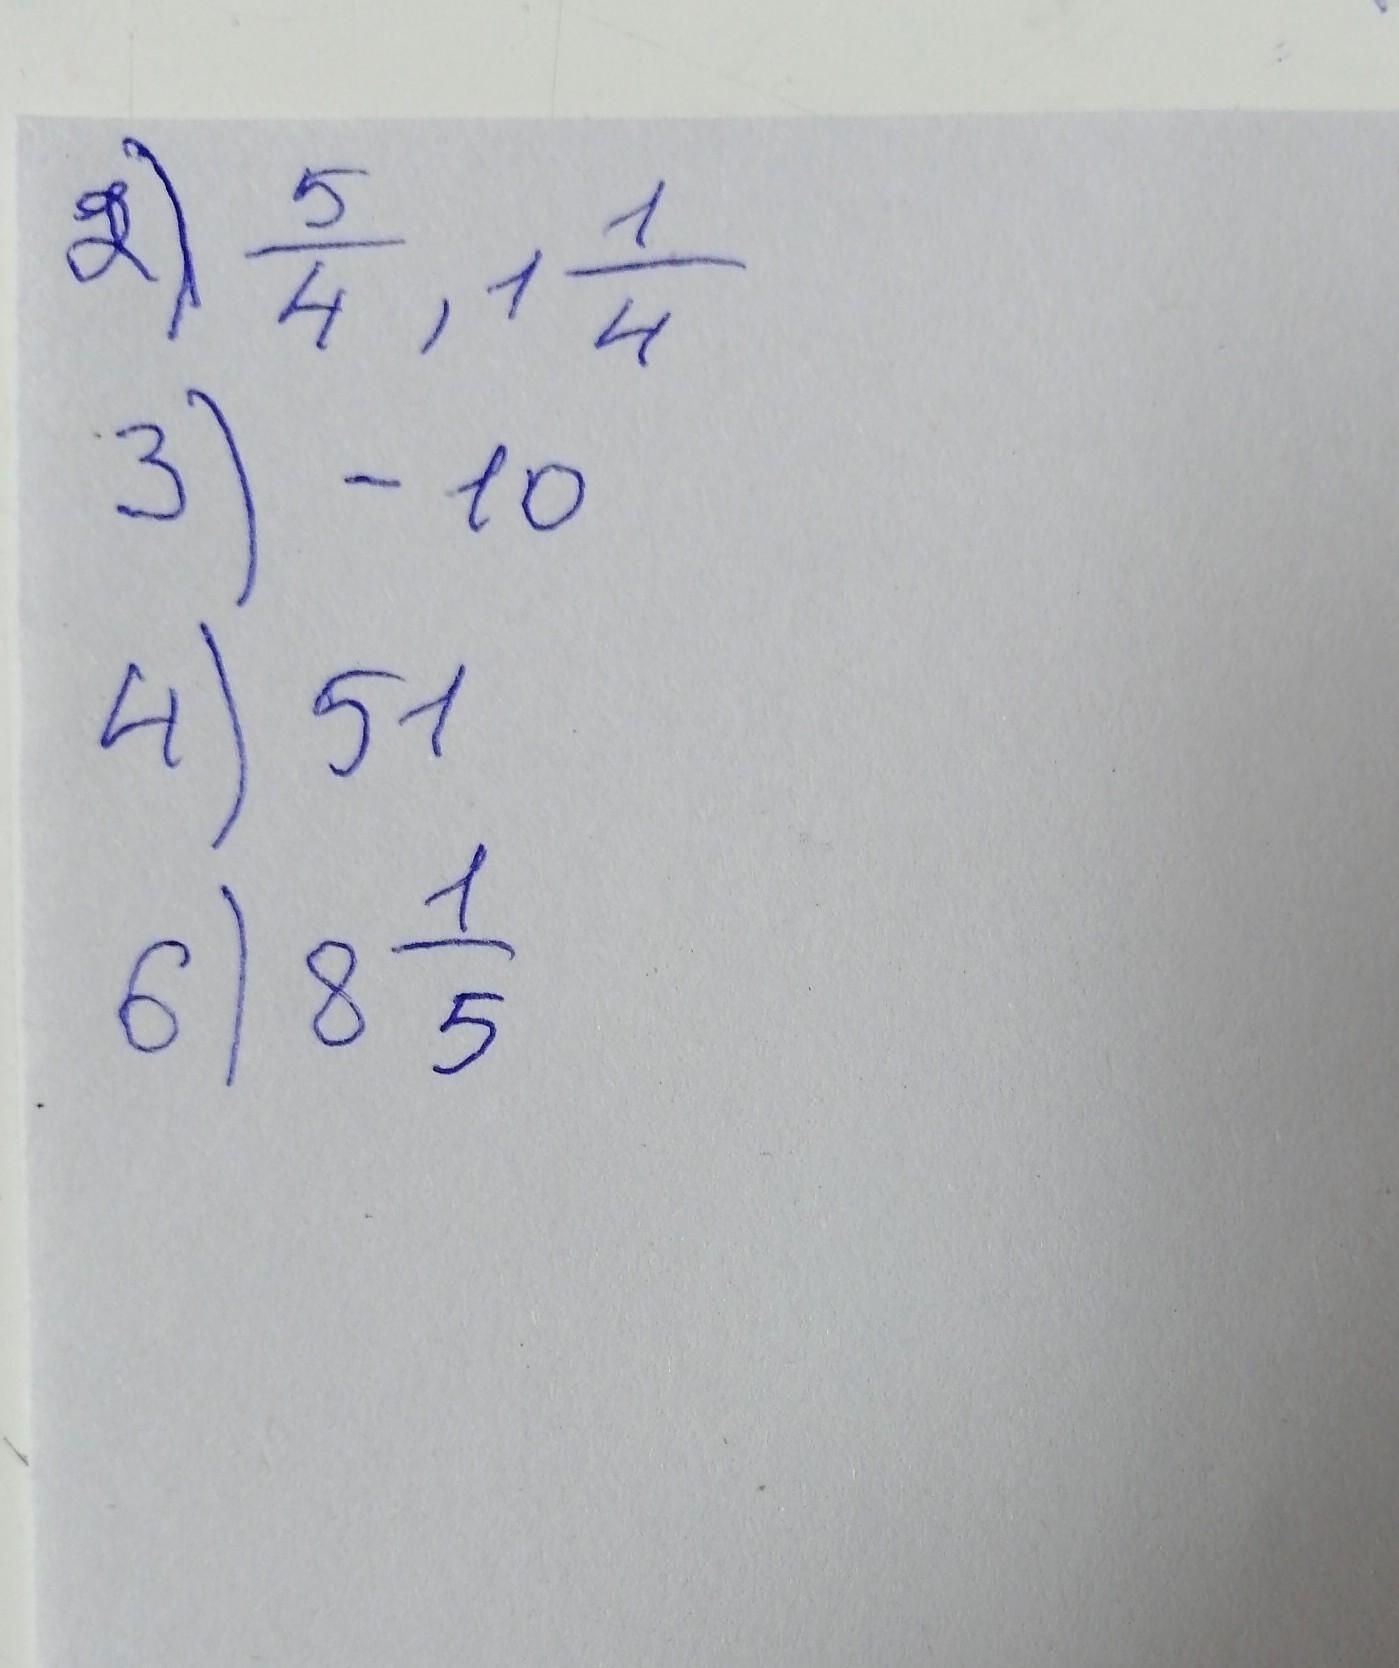 2) 5/4, 1 1/4
3) - 10
4) 51
6) 8 1/5